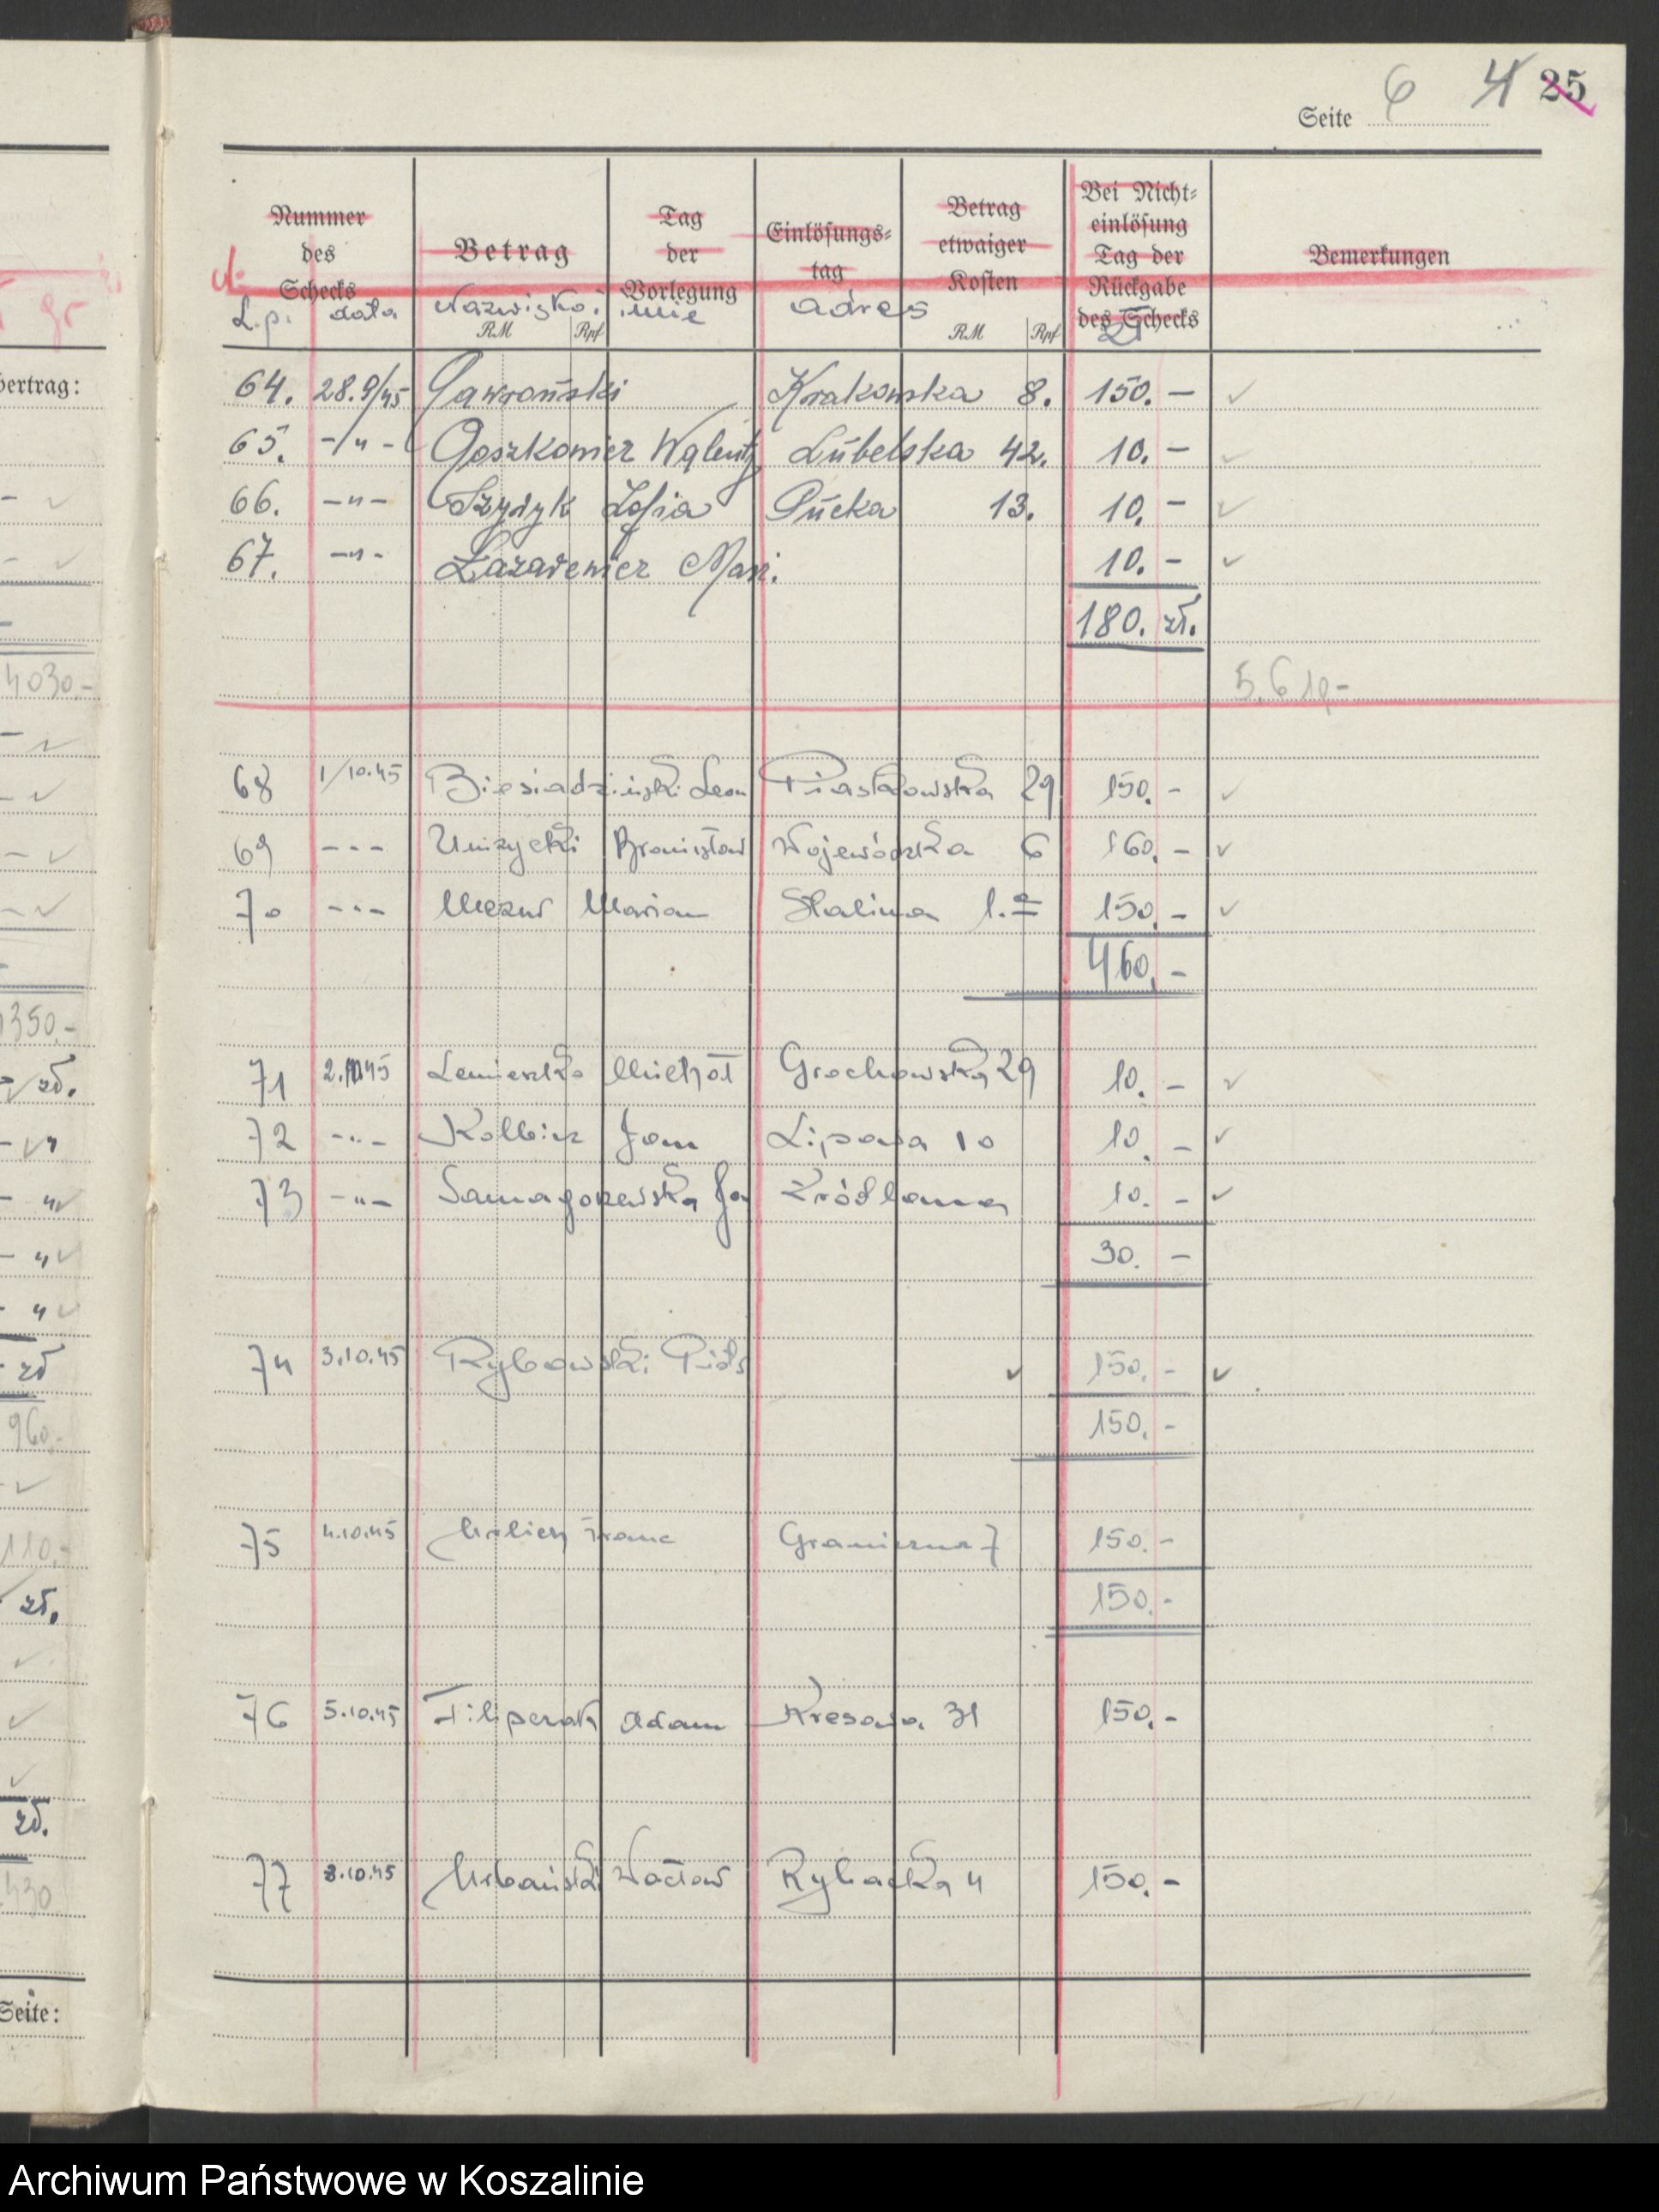 Seite 6 4 25
Nummer des Schecks
Betrag
RM Rpf
Tag der Vorlegung
Einlösungs-
tag
Betrag etwaiger Kosten
RM Rpf
Bei Nicht-
einlösung
Tag der
Rückgabe
des Schecks
Bemerkungen
L.p. data Nazwisko i imie adres zł
64. 28.9/45 Gawroński Krakowska 8. 150.-
65. -"- Lubelska 42. 10.-
66. -"- Zofia Pucka 13. 10.-
67. -"- 10.-
180. zł.
5.610,-
68 1/10.45 Biesiadziński Leon Piastowska 29 150.-
69 --- Bronisław Wojewódzka 6 160,-
70 --- Mazur Marian Stalina 150,-
460,-
71 2.10.45 Lemieszko Michał Grochowska 29 10.-
72 -"- Jan Lipowa 10 10.-
73 -"- 10.-
30.-
74 3.10.45 Rybowski Piotr 150,-
150,-
75 4.10.45 Franc Graniczna 7 150.-
150,-
76 5.10.45 Filipczak Adam Kresowa 31 150,-
77 8.10.45 Urbański Wacław Rybacka 4 150,-
bertrag:
4030.-
1350,-
zł.
960,-
110,-
zł.
zł.
430
Seite:
Archiwum Państwowe w Koszalinie